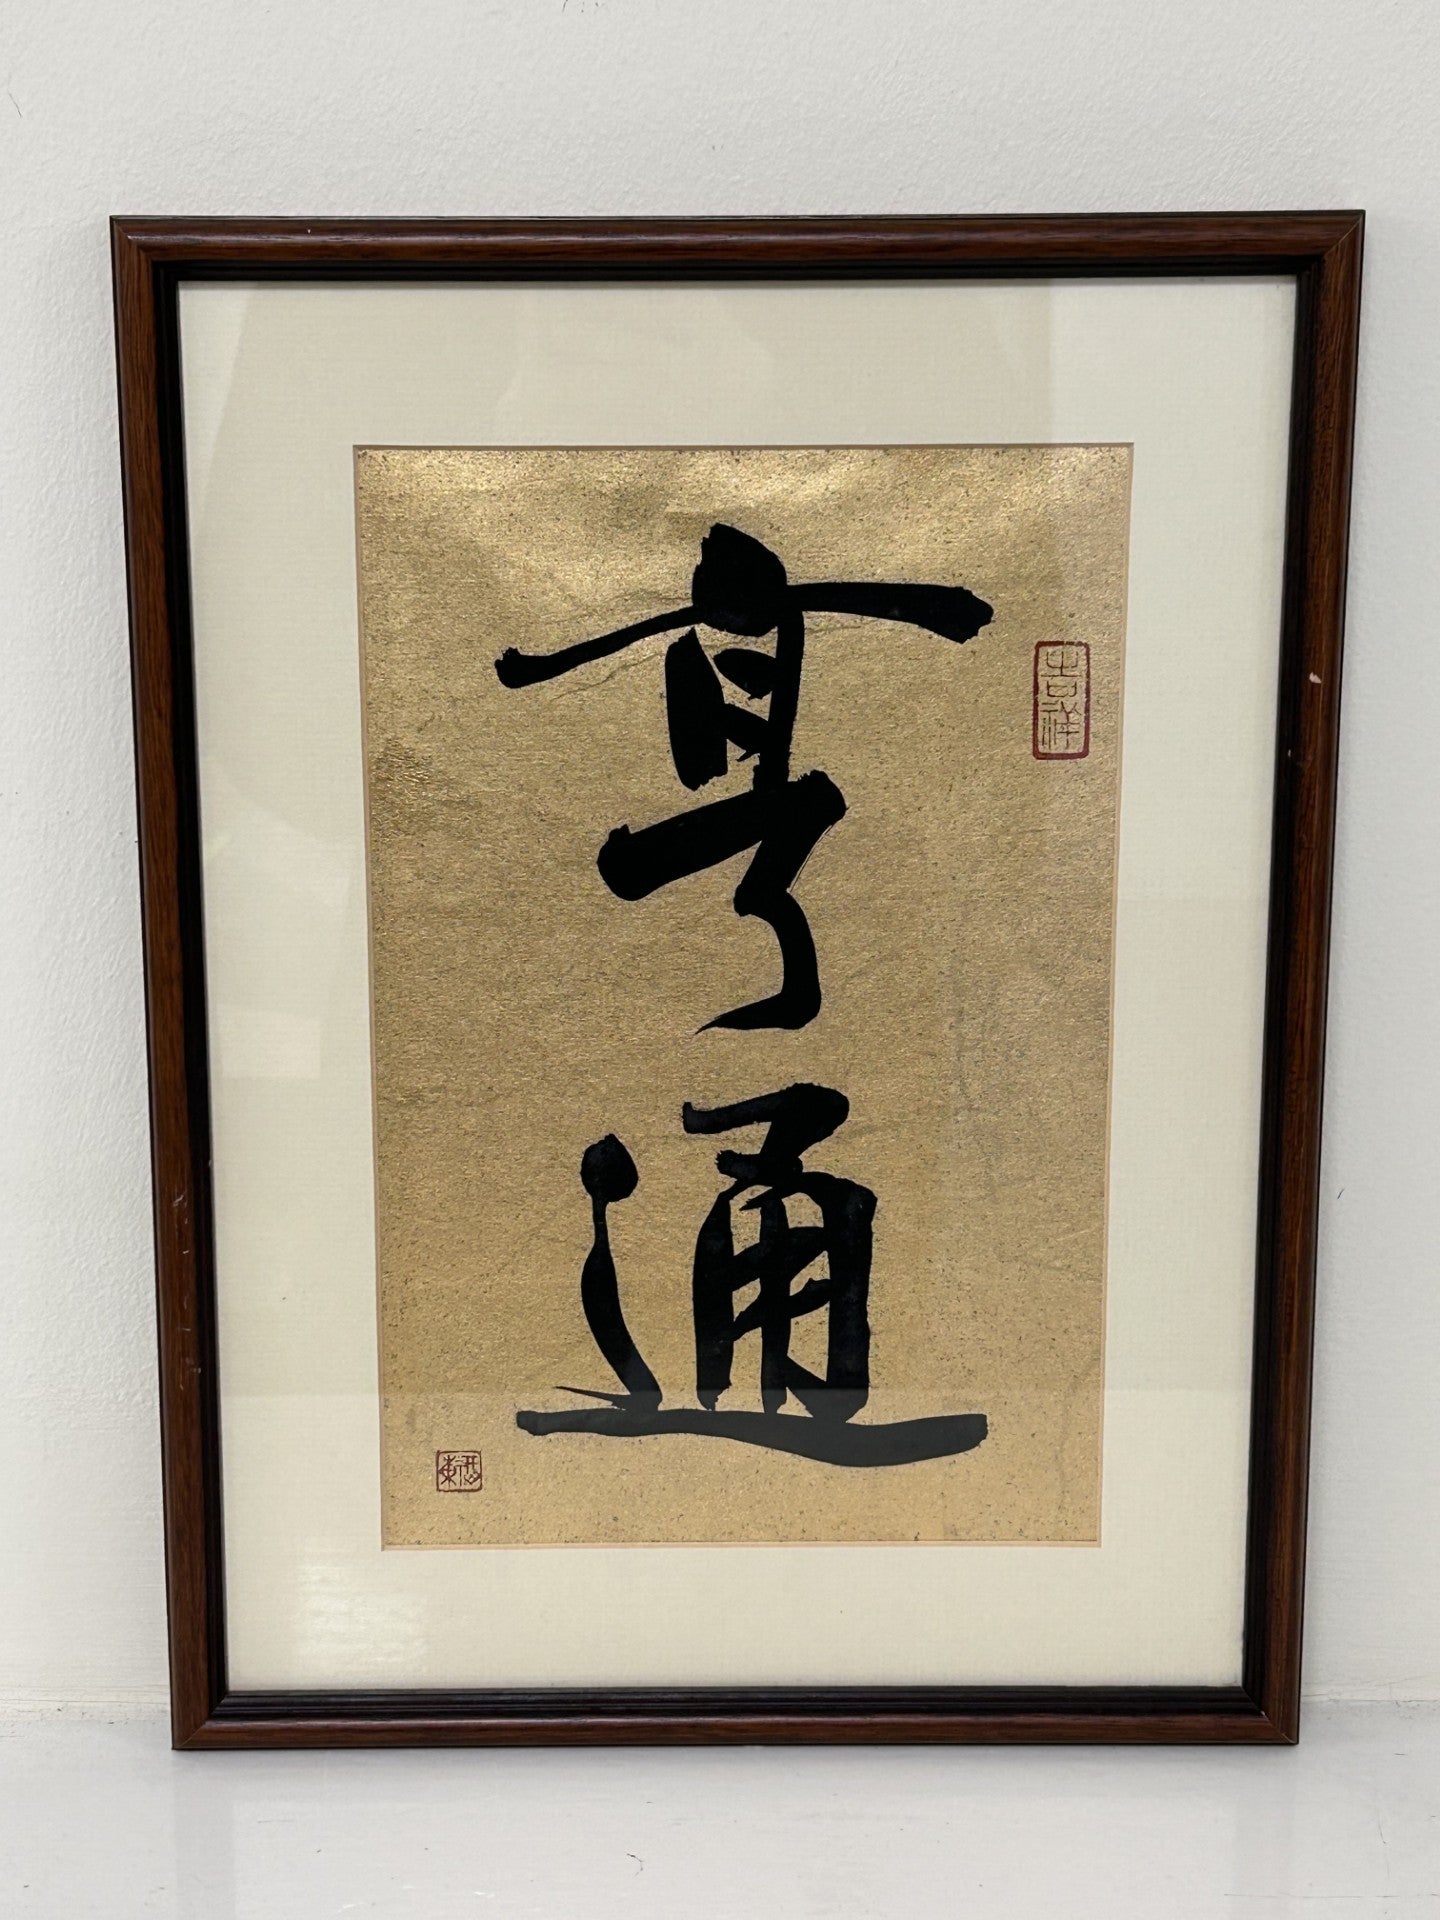 亨通
吉祥